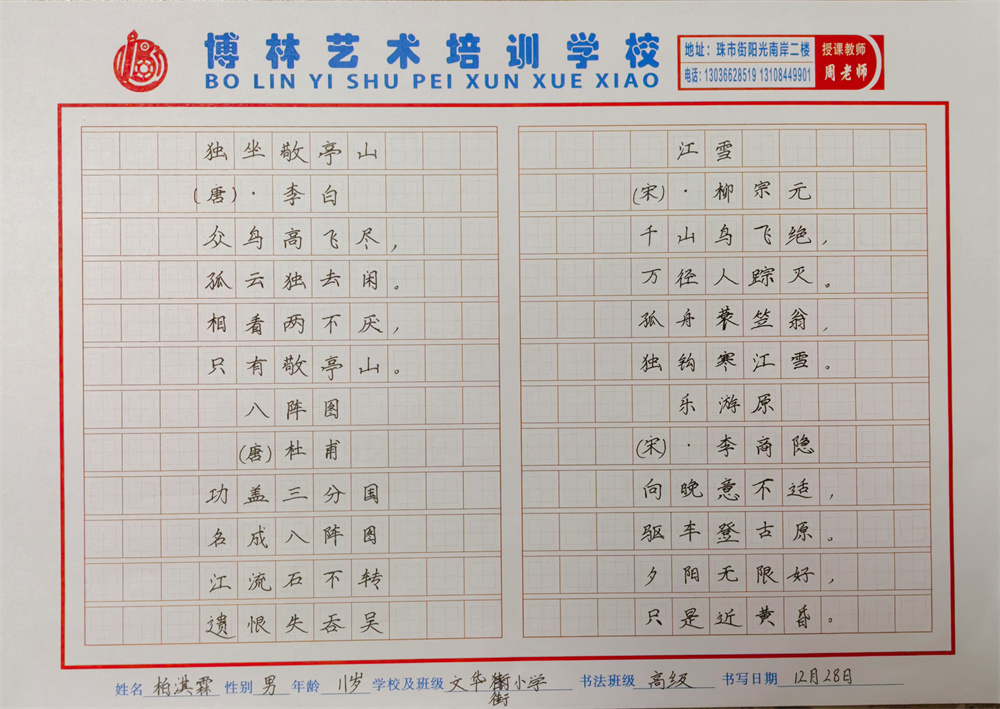 博林艺术培训学校
BO LIN YI SHU PEI XUN XUE XIAO
地址：珠市街阳光南岸二楼
电话：13036628519 13108449901
授课教师
周老师
独坐敬亭山
(唐)·李白
众鸟高飞尽，
孤云独去闲。
相看两不厌，
只有敬亭山。
八阵图
(唐)杜甫
功盖三分国
名成八阵图
江流石不转
遗恨失吞吴
江雪
(宋)·柳宗元
千山鸟飞绝，
万径人踪灭。
孤舟蓑笠翁，
独钩寒江雪。
乐游原
(宋)·李商隐
向晚意不适，
驱车登古原。
夕阳无限好，
只是近黄昏。
姓名 柏淇霖 性别 男 年龄 11岁 学校及班级 文华街小学 书法班级 高级 书写日期 12月28日